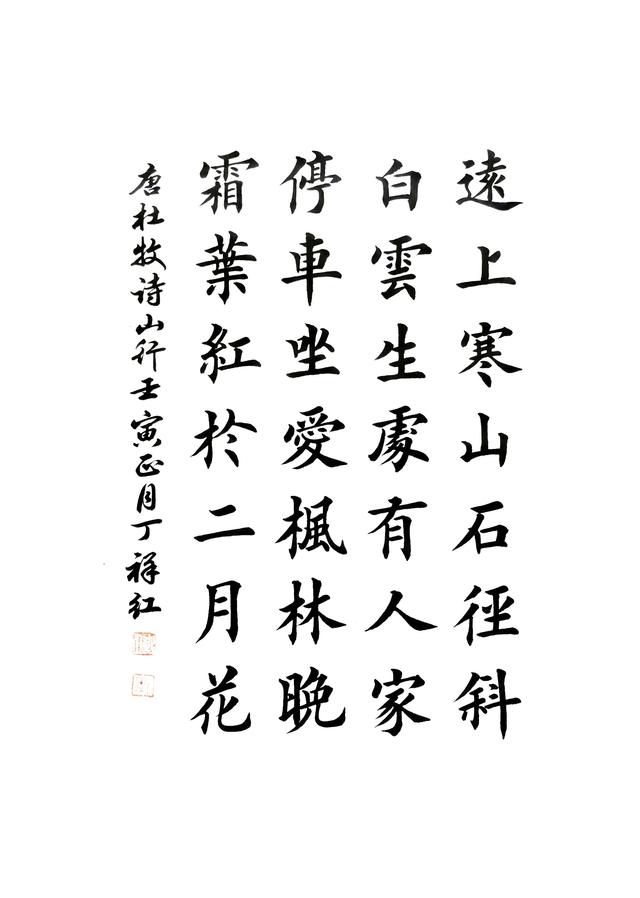 遠上寒山石徑斜
白雲生處有人家
停車坐愛楓林晚
霜葉紅於二月花
唐杜牧诗山行壬寅正月丁祥红